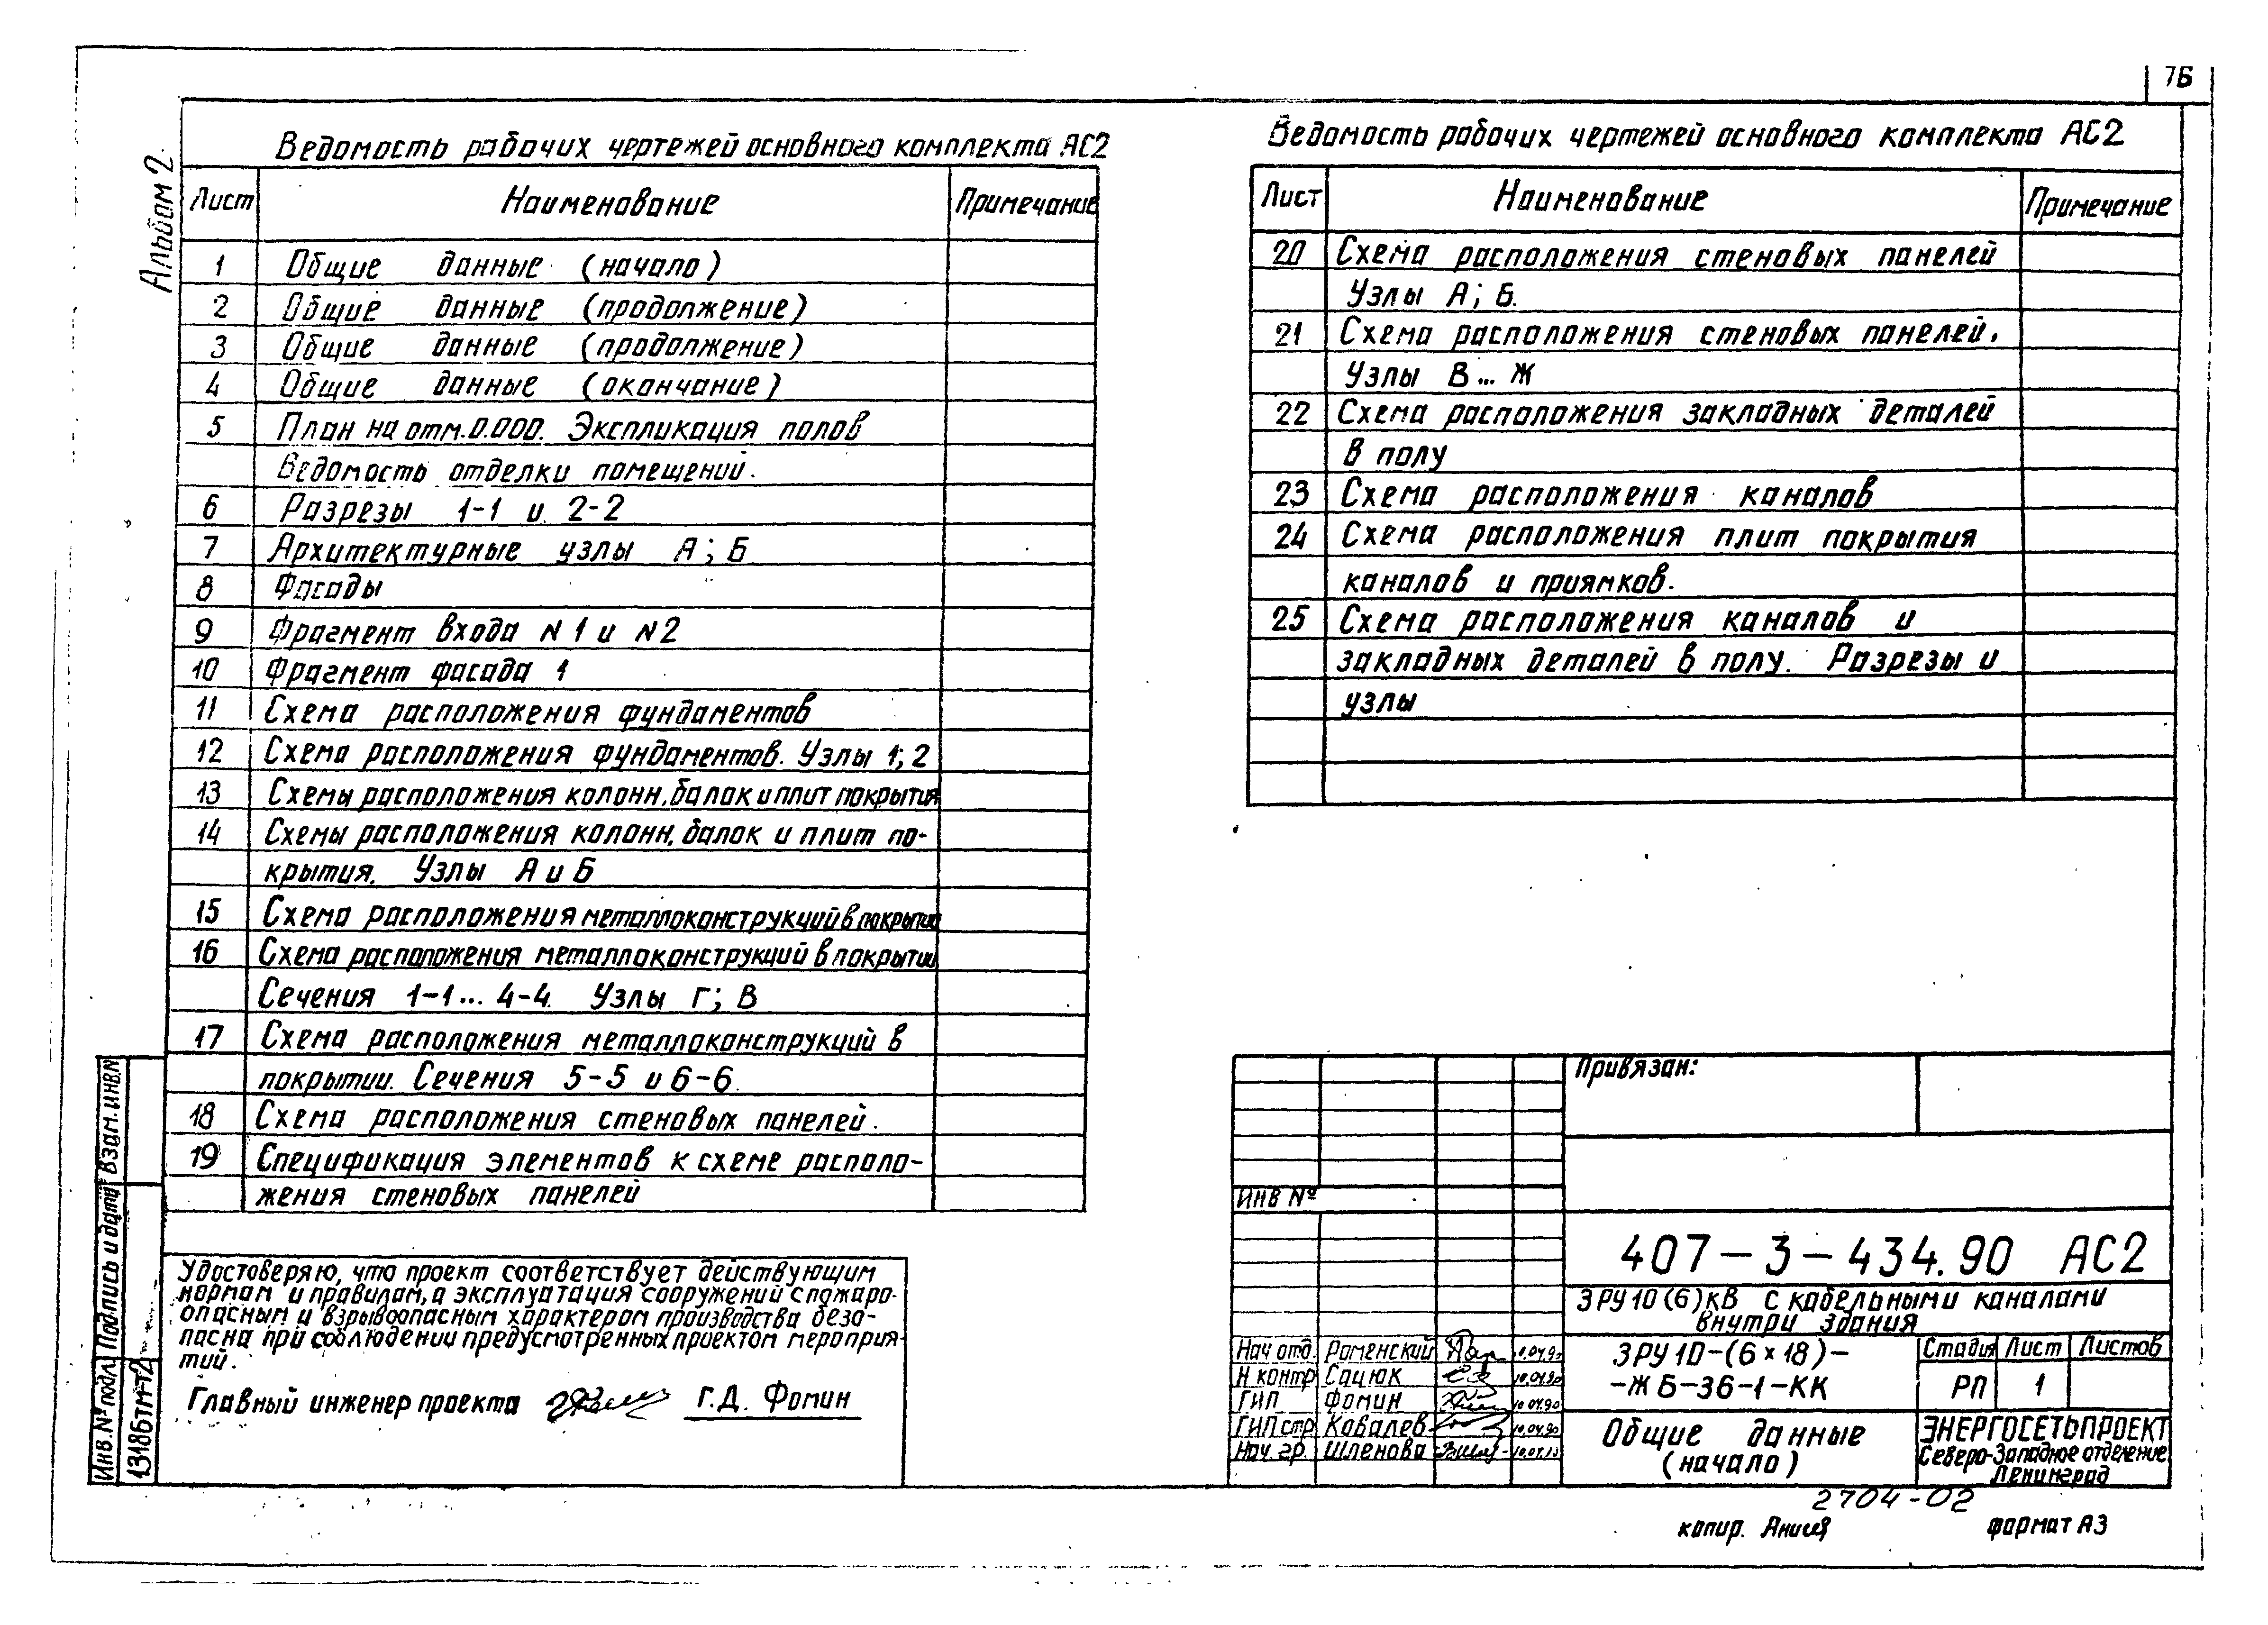 76
Альбом 2
Ведомость рабочих чертежей основного комплекта АС2
Лист Наименование Примечание
1 Общие данные (начало)
2 Общие данные (продолжение)
3 Общие данные (продолжение)
4 Общие данные (окончание)
5 План на отм. 0.000. Экспликация полов
Ведомость отделки помещений.
6 Разрезы 1-1 и 2-2
7 Архитектурные узлы А; Б
8 Фасады
9 Фрагмент входа N 1 и N 2
10 Фрагмент фасада 1
11 Схема расположения фундаментов
12 Схема расположения фундаментов. Узлы 1; 2
13 Схемы расположения колонн, балок и плит покрытия
14 Схемы расположения колонн, балок и плит по-
крытия. Узлы А и Б
15 Схема расположения металлоконструкций в покрытии
16 Схема расположения металлоконструкций в покрытии
Сечения 1-1... 4-4. Узлы Г; В
17 Схема расположения металлоконструкций в
покрытии. Сечения 5-5 и 6-6.
18 Схема расположения стеновых панелей.
19 Спецификация элементов к схеме располо-
жения стеновых панелей
Ведомость рабочих чертежей основного комплекта АС2
Лист Наименование Примечание
20 Схема расположения стеновых панелей
Узлы А; Б.
21 Схема расположения стеновых панелей.
Узлы В... Ж
22 Схема расположения закладных деталей
в полу
23 Схема расположения каналов
24 Схема расположения плит покрытия
каналов и приямков.
25 Схема расположения каналов и
закладных деталей в полу. Разрезы и
узлы
Удостоверяю, что проект соответствует действующим
нормам и правилам, а эксплуатация сооружений с пожаро-
опасным и взрывоопасным характером производства безо-
пасна при соблюдении предусмотренных проектом мероприя-
тий.
Главный инженер проекта Г.Д. Фомин
Взам. инв.N
Подпись и дата
Инв. № подл.
13186тм-т2
Привязан:
Инв №
407-3-434.90 АС2
ЗРУ 10 (6) кВ с кабельными каналами
внутри здания
Нач отд. Раменский 10.04.90
Н контр Сацюк 10.04.90
ГИП Фомин 10.04.90
ГИП стр Ковалев 10.04.90
Нач. гр. Шленова
ЗРУ 10-(6×18)-
-ЖБ-36-1-КК
Стадия Лист Листов
РП 1
Общие данные
(начало)
ЭНЕРГОСЕТЬПРОЕКТ
Северо-Западное отделение
Ленинград
2704-02
копир. формат А3